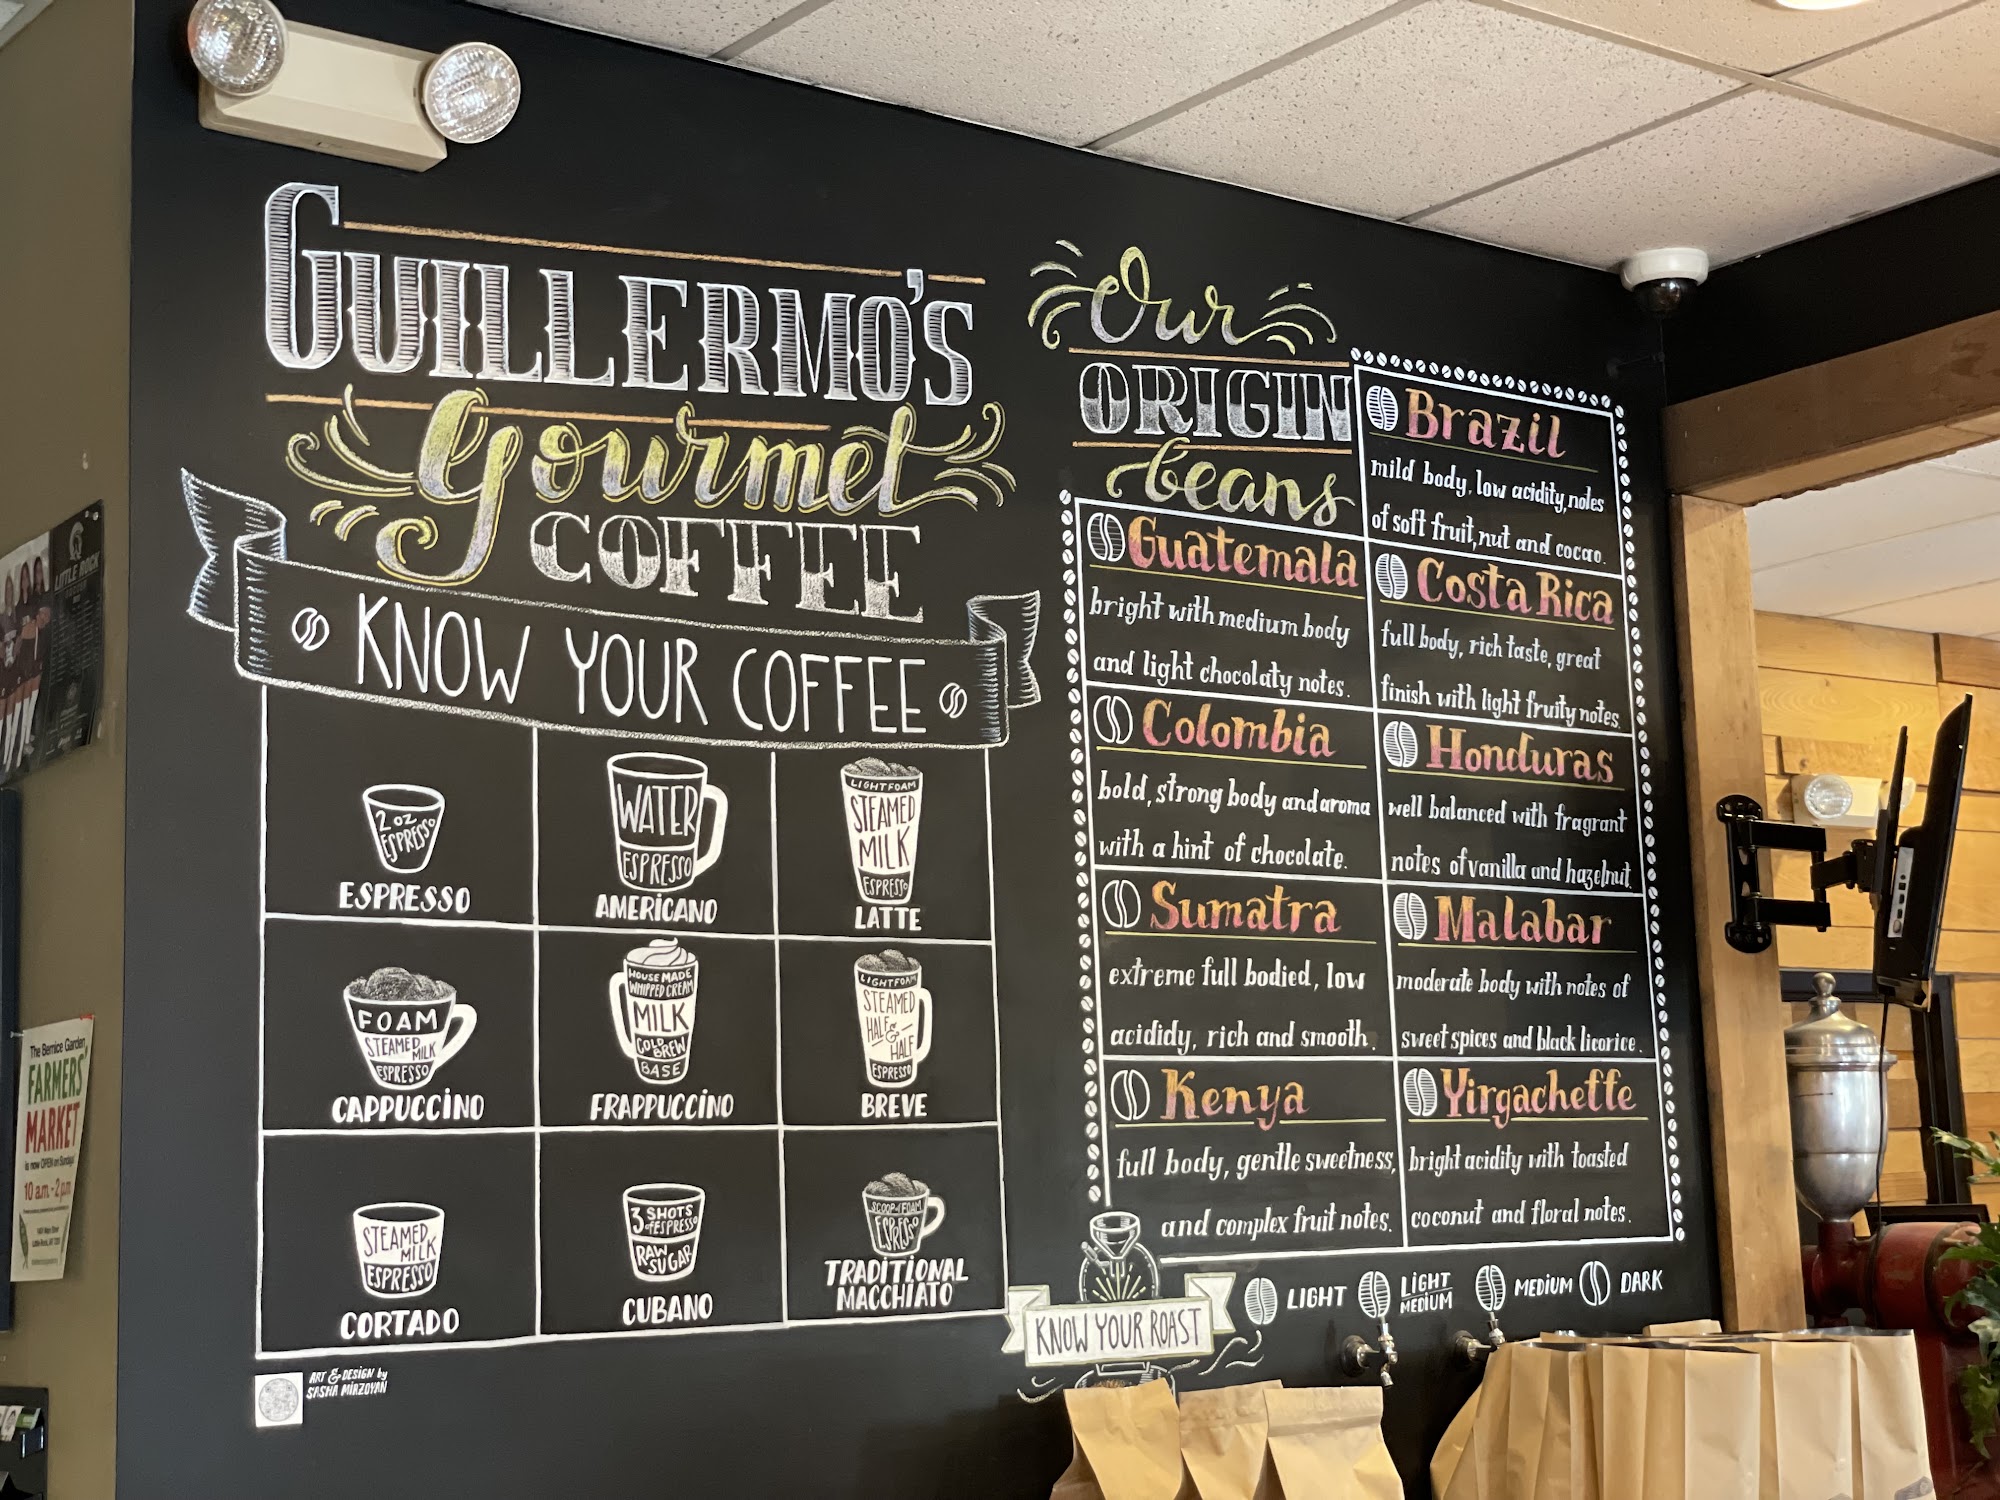 GUILLERMO'S
Gourmet
COFFEE
KNOW YOUR COFFEE
2 OZ
ESPRESSO
ESPRESSO
WATER
ESPRESSO
AMERICANO
LIGHT FOAM
STEAMED
MILK
ESPRESSO
LATTE
FOAM
STEAMED
MILK
ESPRESSO
CAPPUCCINO
HOUSE MADE
WHIPPED CREAM
MILK
COLD
BREW
BASE
FRAPPUCCINO
LIGHT FOAM
STEAMED
HALF &
HALF
ESPRESSO
BREVE
STEAMED
MILK
ESPRESSO
CORTADO
3 SHOTS
of ESPRESSO
RAW
SUGAR
CUBANO
SCOOP of FOAM
ESPRESSO
TRADITIONAL
MACCHIATO
ART & DESIGN by
SASHA MIRZOYAN
Our
ORIGIN
beans
Brazil
mild body, low acidity, notes
of soft fruit, nut and cocao.
Guatemala
bright with medium body
and light chocolaty notes.
Costa Rica
full body, rich taste, great
finish with light fruity notes.
Colombia
bold, strong body and aroma
with a hint of chocolate.
Honduras
well balanced with fragrant
notes of vanilla and hazelnut.
Sumatra
extreme full bodied, low
acididy, rich and smooth.
Malabar
moderate body with notes of
sweet spices and black licorice.
Kenya
full body, gentle sweetness,
and complex fruit notes.
Yirgacheffe
bright acidity with toasted
coconut and floral notes.
KNOW YOUR ROAST
LIGHT
LIGHT
MEDIUM
MEDIUM
DARK
LITTLE ROCK
The Bernice Garden
FARMERS'
MARKET
is now OPEN on Sundays
10 a.m. - 2 p.m.